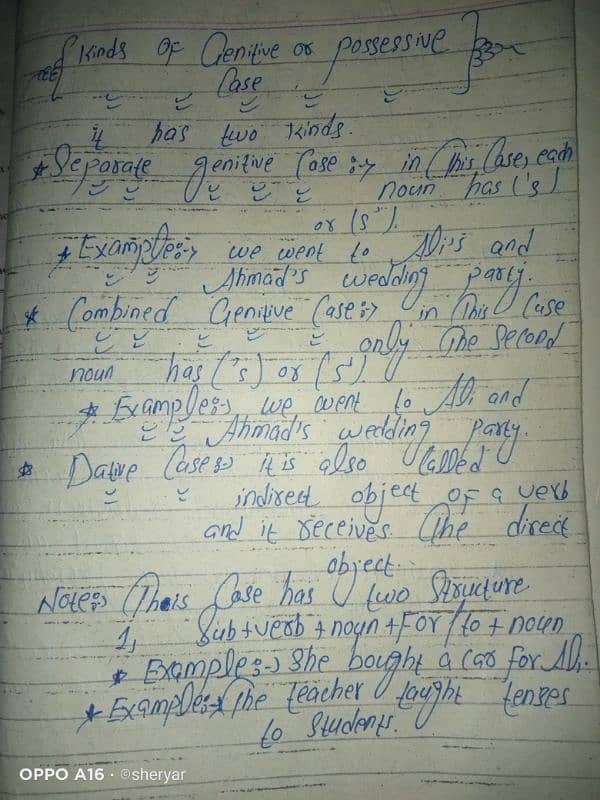 { Kinds OF Genitive or possessive
Case. }
it has two kinds.
* Separate genitive Case :→ in This Case, each
noun has ('s)
or (s').
* Example:→ we went to Ali's and
Ahmad's wedding party.
* Combined Genitive Case:→ in This Case
only The Second
noun has ('s) or (s')
* Example:→ we went to Ali and
Ahmad's wedding party.
* Dative Case:→ it is also Called
indirect object OF a verb
and it receives The direct
object.
Note:→ This Case has two Structure
1, Sub+verb+noun+For/to+noun
* Example:→ She bought a car for Ali.
* Example:→ The teacher taught tenses
to Students.
OPPO A16 · ©sheryar